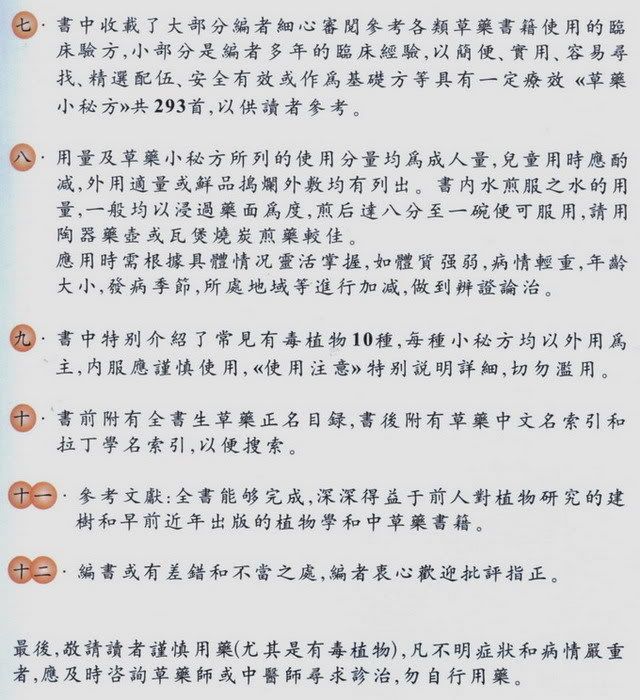 七．書中收載了大部分編者細心審閱參考各類草藥書籍使用的臨
床驗方,小部分是編者多年的臨床經驗,以簡便、實用、容易尋
找、精選配伍、安全有效或作爲基礎方等具有一定療效《草藥
小秘方》共293首,以供讀者參考。
八．用量及草藥小秘方所列的使用分量均爲成人量,兒童用時應酌
减,外用適量或鮮品搗爛外敷均有列出。書内水煎服之水的用
量,一般均以浸過藥面爲度,煎后達八分至一碗便可服用,請用
陶器藥壺或瓦煲燒炭煎藥較佳。
應用時需根據具體情况靈活掌握,如體質强弱,病情輕重,年齡
大小,發病季節,所處地域等進行加减,做到辨證論治。
九．書中特别介紹了常見有毒植物10種,每種小秘方均以外用爲
主,内服應謹慎使用,《使用注意》特别説明詳細,切勿濫用。
十．書前附有全書生草藥正名目録,書後附有草藥中文名索引和
拉丁學名索引,以便搜索。
十一．參考文獻:全書能够完成,深深得益于前人對植物研究的建
樹和早前近年出版的植物學和中草藥書籍。
十二．編書或有差錯和不當之處,編者衷心歡迎批評指正。
最後,敬請讀者謹慎用藥(尤其是有毒植物),凡不明症狀和病情嚴重
者,應及時咨詢草藥師或中醫師尋求診治,勿自行用藥。